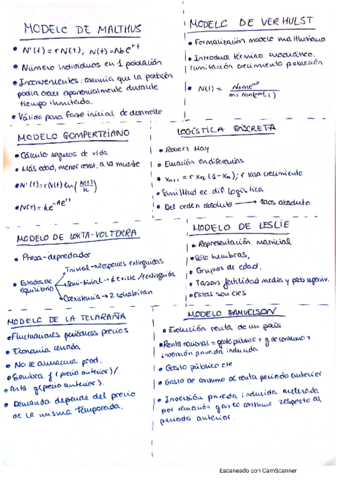 MODELO DE MALTHUS
• N'(t) = rN(t); N(t) = N₀e^rt
• Número individuos en 1 población
• Inconvenientes: asumía que la población
podía crecer exponencialmente durante
tiempo ilimitado.
• Válido para fase inicial de desarrollo
MODELO DE VERHULST
• Formalización modelo malthusiano
• Introduce término cuadrático,
limitación crecimiento población
• N(t) =
MODELO GOMPERTZIANO
• Cálculo seguros de vida
• Más edad, menor resist. a la muerte
• N'(t) =
• N(t) = ke^-Ae^rt
LOGÍSTICA DISCRETA
• Robert May
• Ecuación en diferencias
• xₙ₊₁ = r xₙ (1-xₙ); r tasa crecimiento
• Similitud ec dif logística
• Del orden absoluto → caos absoluto
MODELO DE LOTKA-VOLTERRA
• Presa-depredador
• Estados de equilibrio
Trivial → 2 especies extinguidas
Semi-trivial → 1 existe / 1 extinguida
Coexistencia → 2 cohabitan
MODELO DE LESLIE
• Representación matricial
• Sólo hembras,
• Grupos de edad.
• Tasas fertilidad media y prob superv.
• Estas son ctes
MODELO DE LA TELARAÑA
• Fluctuaciones periódicas precios
• Economía cerrada
• No se almacena prod.
• Siembra f(precio anterior)/
g(precio anterior).
• Demanda depende del precio
de la misma temporada.
MODELO SAMUELSON
• Evolución renta de un país
• Renta nacional = gasto público + g de consumo +
inversión privada inducida
• Gasto público cte
• Gasto de consumo α renta periodo anterior
• Inversión privada inducida acelerada
por variación gasto consumo respecto al
periodo anterior.
Escaneado con CamScanner